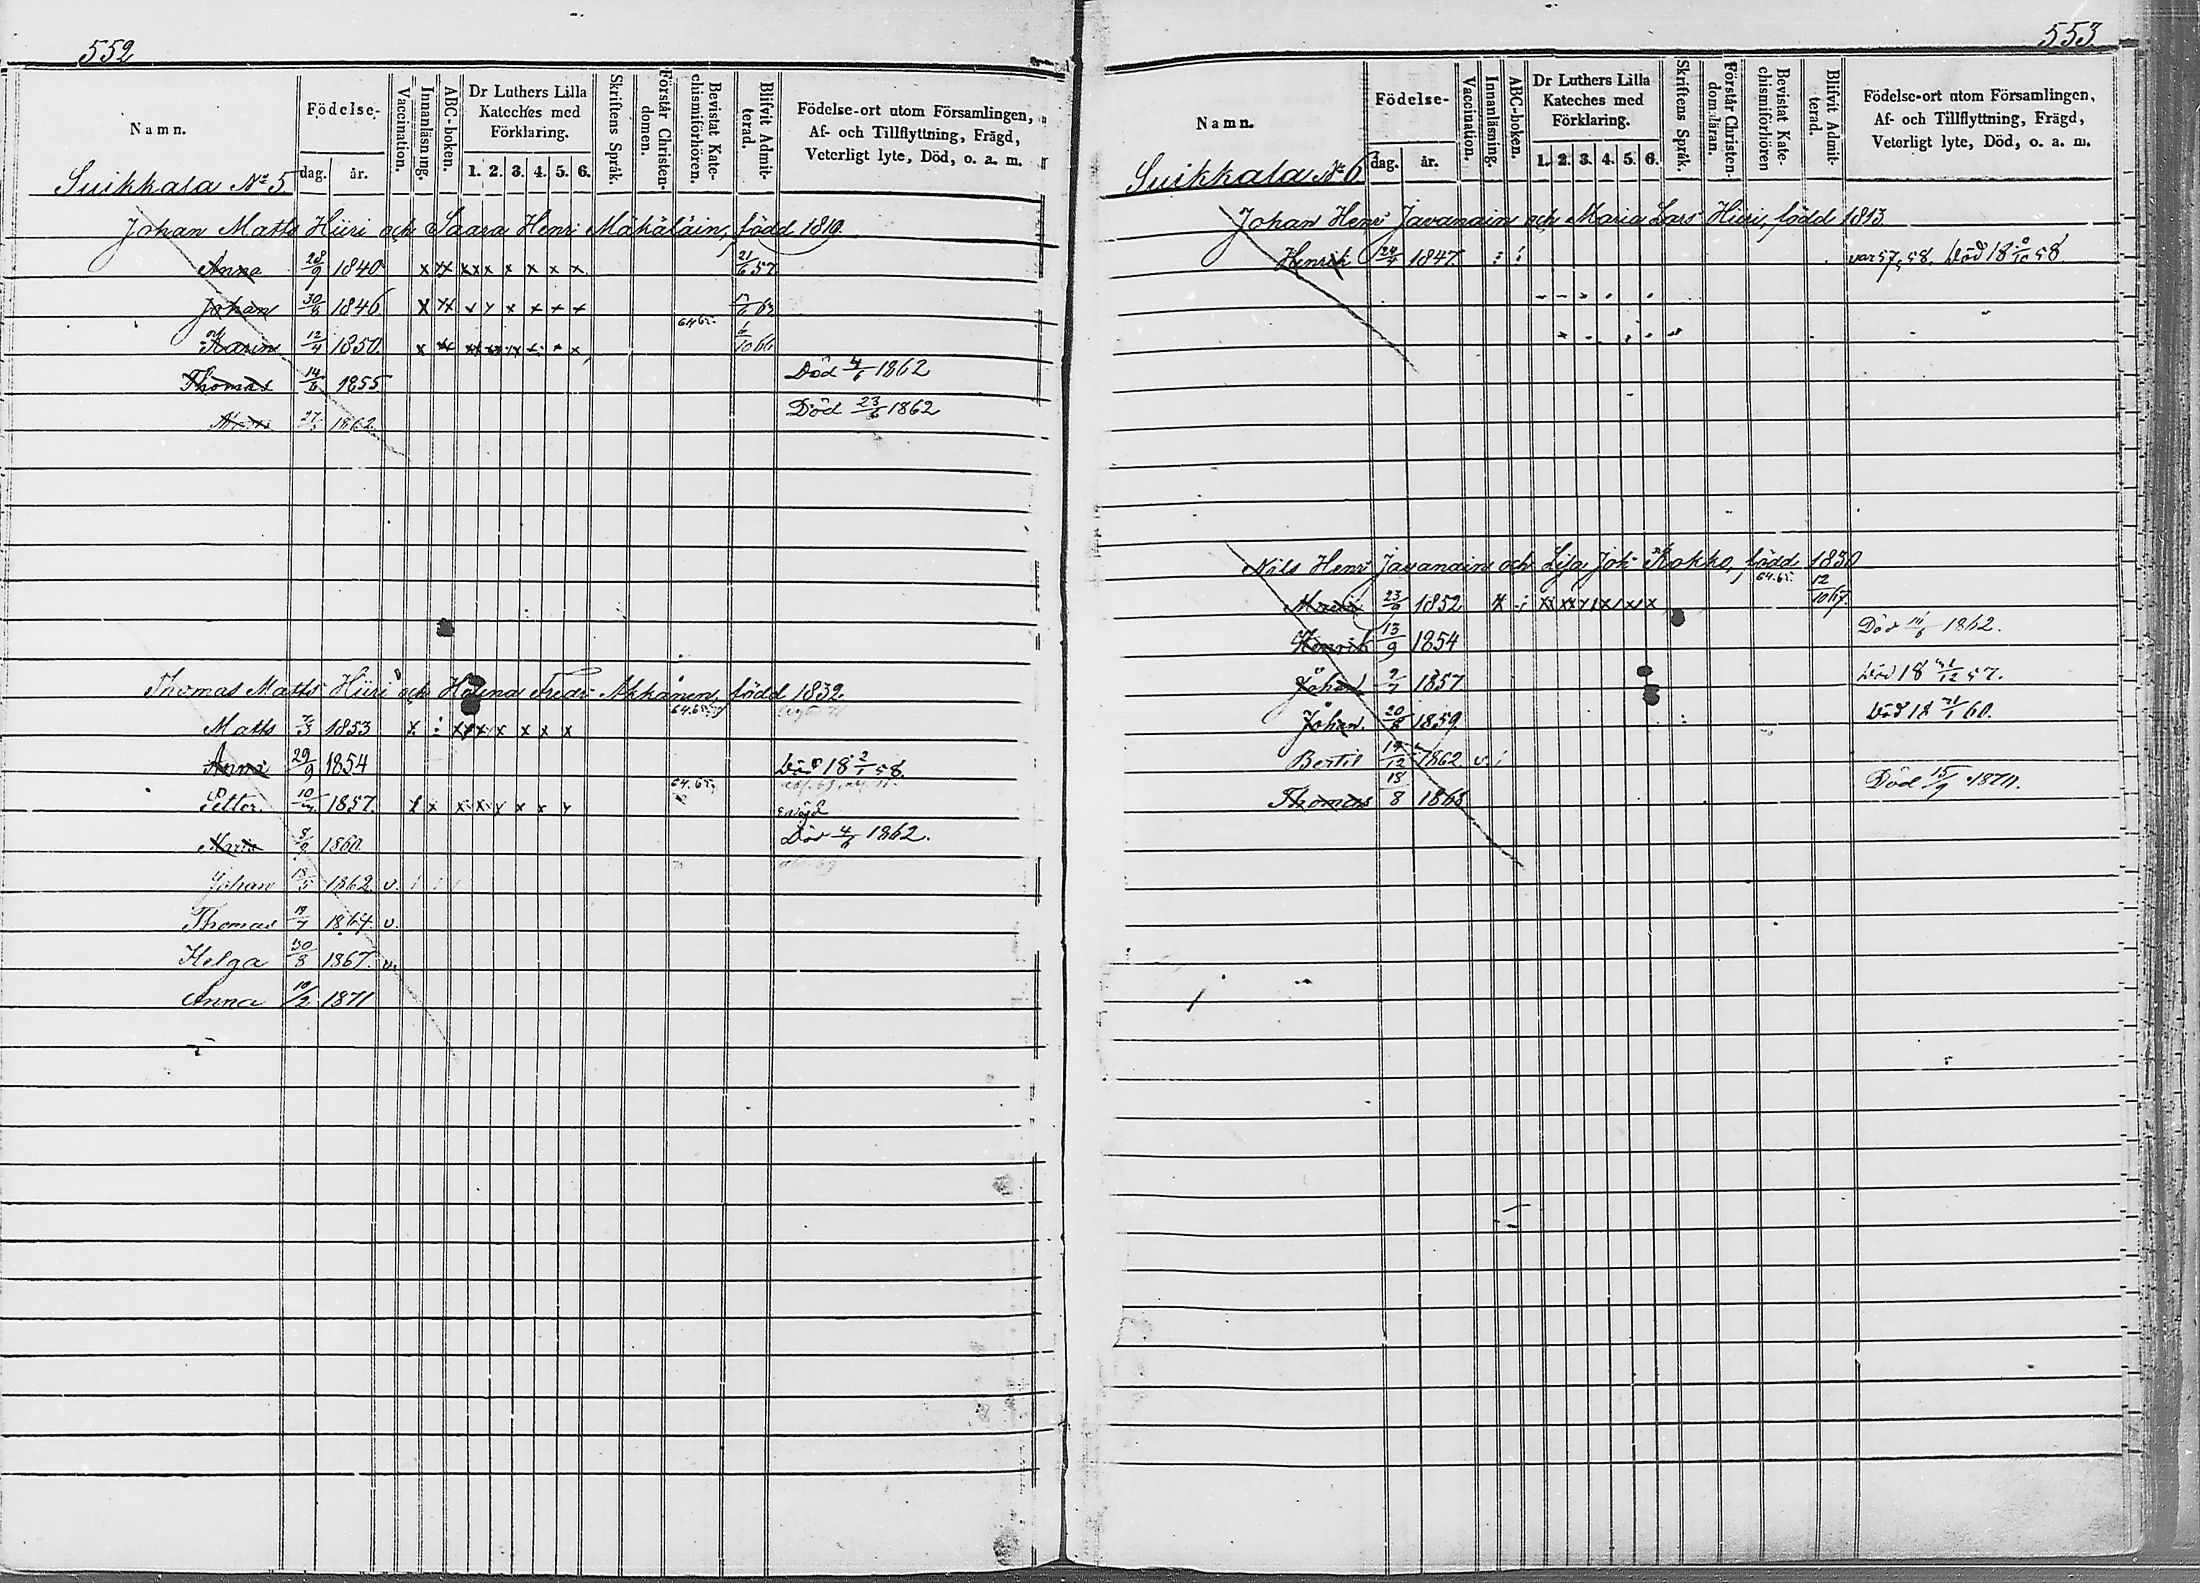 552
Namn.
Födelse-
dag. år.
Vaccination.
Innanläsning.
ABC-boken.
Dr Luthers Lilla Kateches med Förklaring.
1. 2. 3. 4. 5. 6.
Skriftens Språk.
Förstår Christen-domen.
Bevistat Kate-chismiförhören.
Blifvit Admit-terad.
Födelse-ort utom Församlingen, Af- och Tillflyttning, Frägd, Veterligt lyte, Död, o. a. m.
Suikkala No 5
Johan Matts Hiiri och Saara Henr: Mähäläin, född 1819.
Anna 28/9 1840 x xx xx x x x x x 21/6 57
Johan 30/8 1846 x xx x x x x x x
64 65.
Karin 12/4 1850. x
Thomas 14/6 1855 Död 4/6 1862
1862 Död 23/6 1862
Thomas Matts Hiiri och Helena Fredr: Akkanen, född 1832.
Matts 1853 x
Anna 29/9 1854 Död 18 2/1 58
64.65.
Petter 10/7 1857. x x x x x x x
Maria 8/9 1860. Död 4/6 1862.
Johan 18/5 1862 v.
Thomas 19/7 1864. v.
Helga 30/8 1867. v.
Anna 10/2 1871
553.
Namn.
Födelse-
dag. år.
Vaccination.
Innanläsning.
ABC-boken.
Dr Luthers Lilla Kateches med Förklaring.
1. 2. 3. 4. 5. 6.
Skriftens Språk.
Förstår Christen-domsläran.
Bevistat Kate-chismiförhören
Blifvit Admit-terad.
Födelse-ort utom Församlingen, Af- och Tillflyttning, Frägd, Veterligt lyte, Död, o. a. m.
Suikkala No 6
Johan Henr: Javanain och Maria Lars Hiiri, född 1813.
Henrik 24/7 1847. var 57, 58. Död 18 58
Nils Henr: Javanain och Lisa Joh: Kokko, född 1830
64.65.
Maria 23/9 1852 12/10 67.
Henrik 13/9 1854 Död 11/6 1862.
Johan 9/7 1857 Död 18 57.
Johan. 20/8 1859. Död 18 60.
Bertil 19/12 1862 v.
Thomas 18/8 1868 Död 15/9 1870.